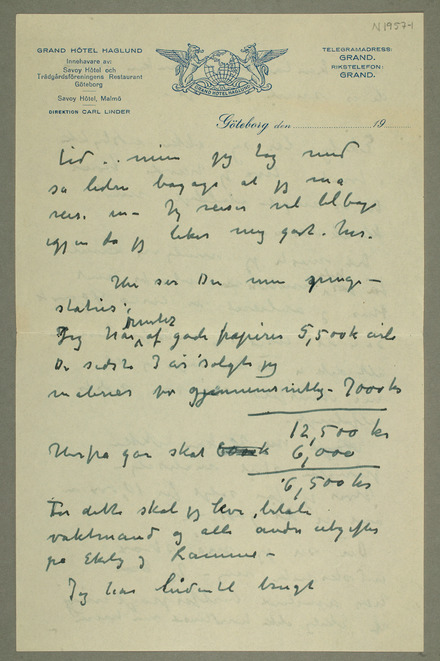 N 1957-1
GRAND HÔTEL HAGLUND
Innehavare av:
Savoy Hôtel och
Trädgårdsföreningens Restaurant
Göteborg
Savoy Hôtel, Malmö
DIREKTION CARL LINDER
GRAND HÔTEL HAGLUND
TELEGRAMADRESS:
GRAND.
RIKSTELEFON:
GRAND.
Göteborg den 19
tid jeg tog med
så liden bagage at jeg må
reise Jeg reiser vel tilbage
igjen da jeg liker mig godt her.
Her ser Du min penge-
status:
Jeg har rentes af gode papirer 5,500 k
De sidste 3 år solgte jeg
malerier for gjennemsnitlig - 7000 kr
12,500 kr
Herfra går skat 6,000
6,500 kr
For dette skal jeg leve, betale
vaktmand og alle andre udgifter
på Ekely og Ramme -
Jeg har hidentil brugt